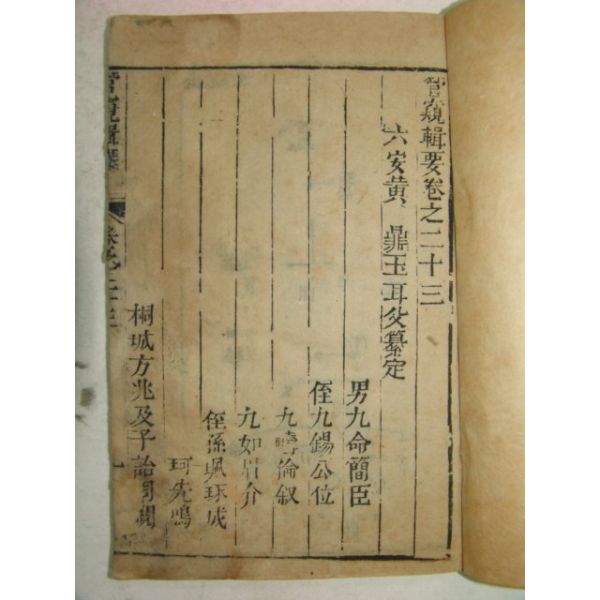 管窺輯要卷之二十三
六安黃 鼎玉耳父纂定
男九命簡臣
侄九錫公位
九疇倫叙
九如眉介
侄孫珮琢成
珂先鳴
桐城方兆及子詒同閱
管窺輯要
卷之二十三
一